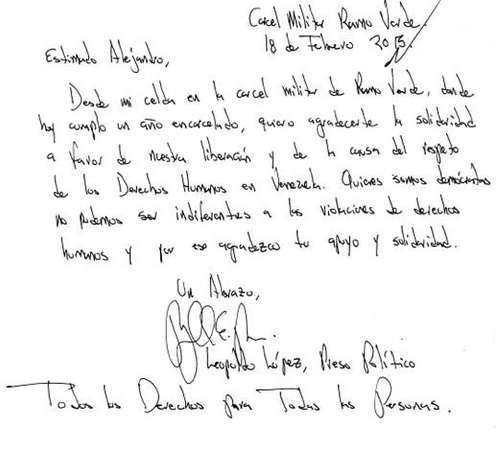 Carcel Militar Ramo Verde.
18 de Febrero 2015
Estimado Alejandro,
Desde mi celda en la carcel militar de Ramo Verde, donde
hoy cumplo un año encarcelado, quiero agradecerte la solidaridad
a favor de nuestra liberación y de la causa del respeto
de los Derechos Humanos en Venezuela. Quienes somos demócratas
no podemos ser indiferentes a las violaciones de derechos
humanos y por eso agradezco tu apoyo y solidaridad.
Un Abrazo,
Leopoldo López, Preso Político
Todos los Derechos para Todas las Personas.